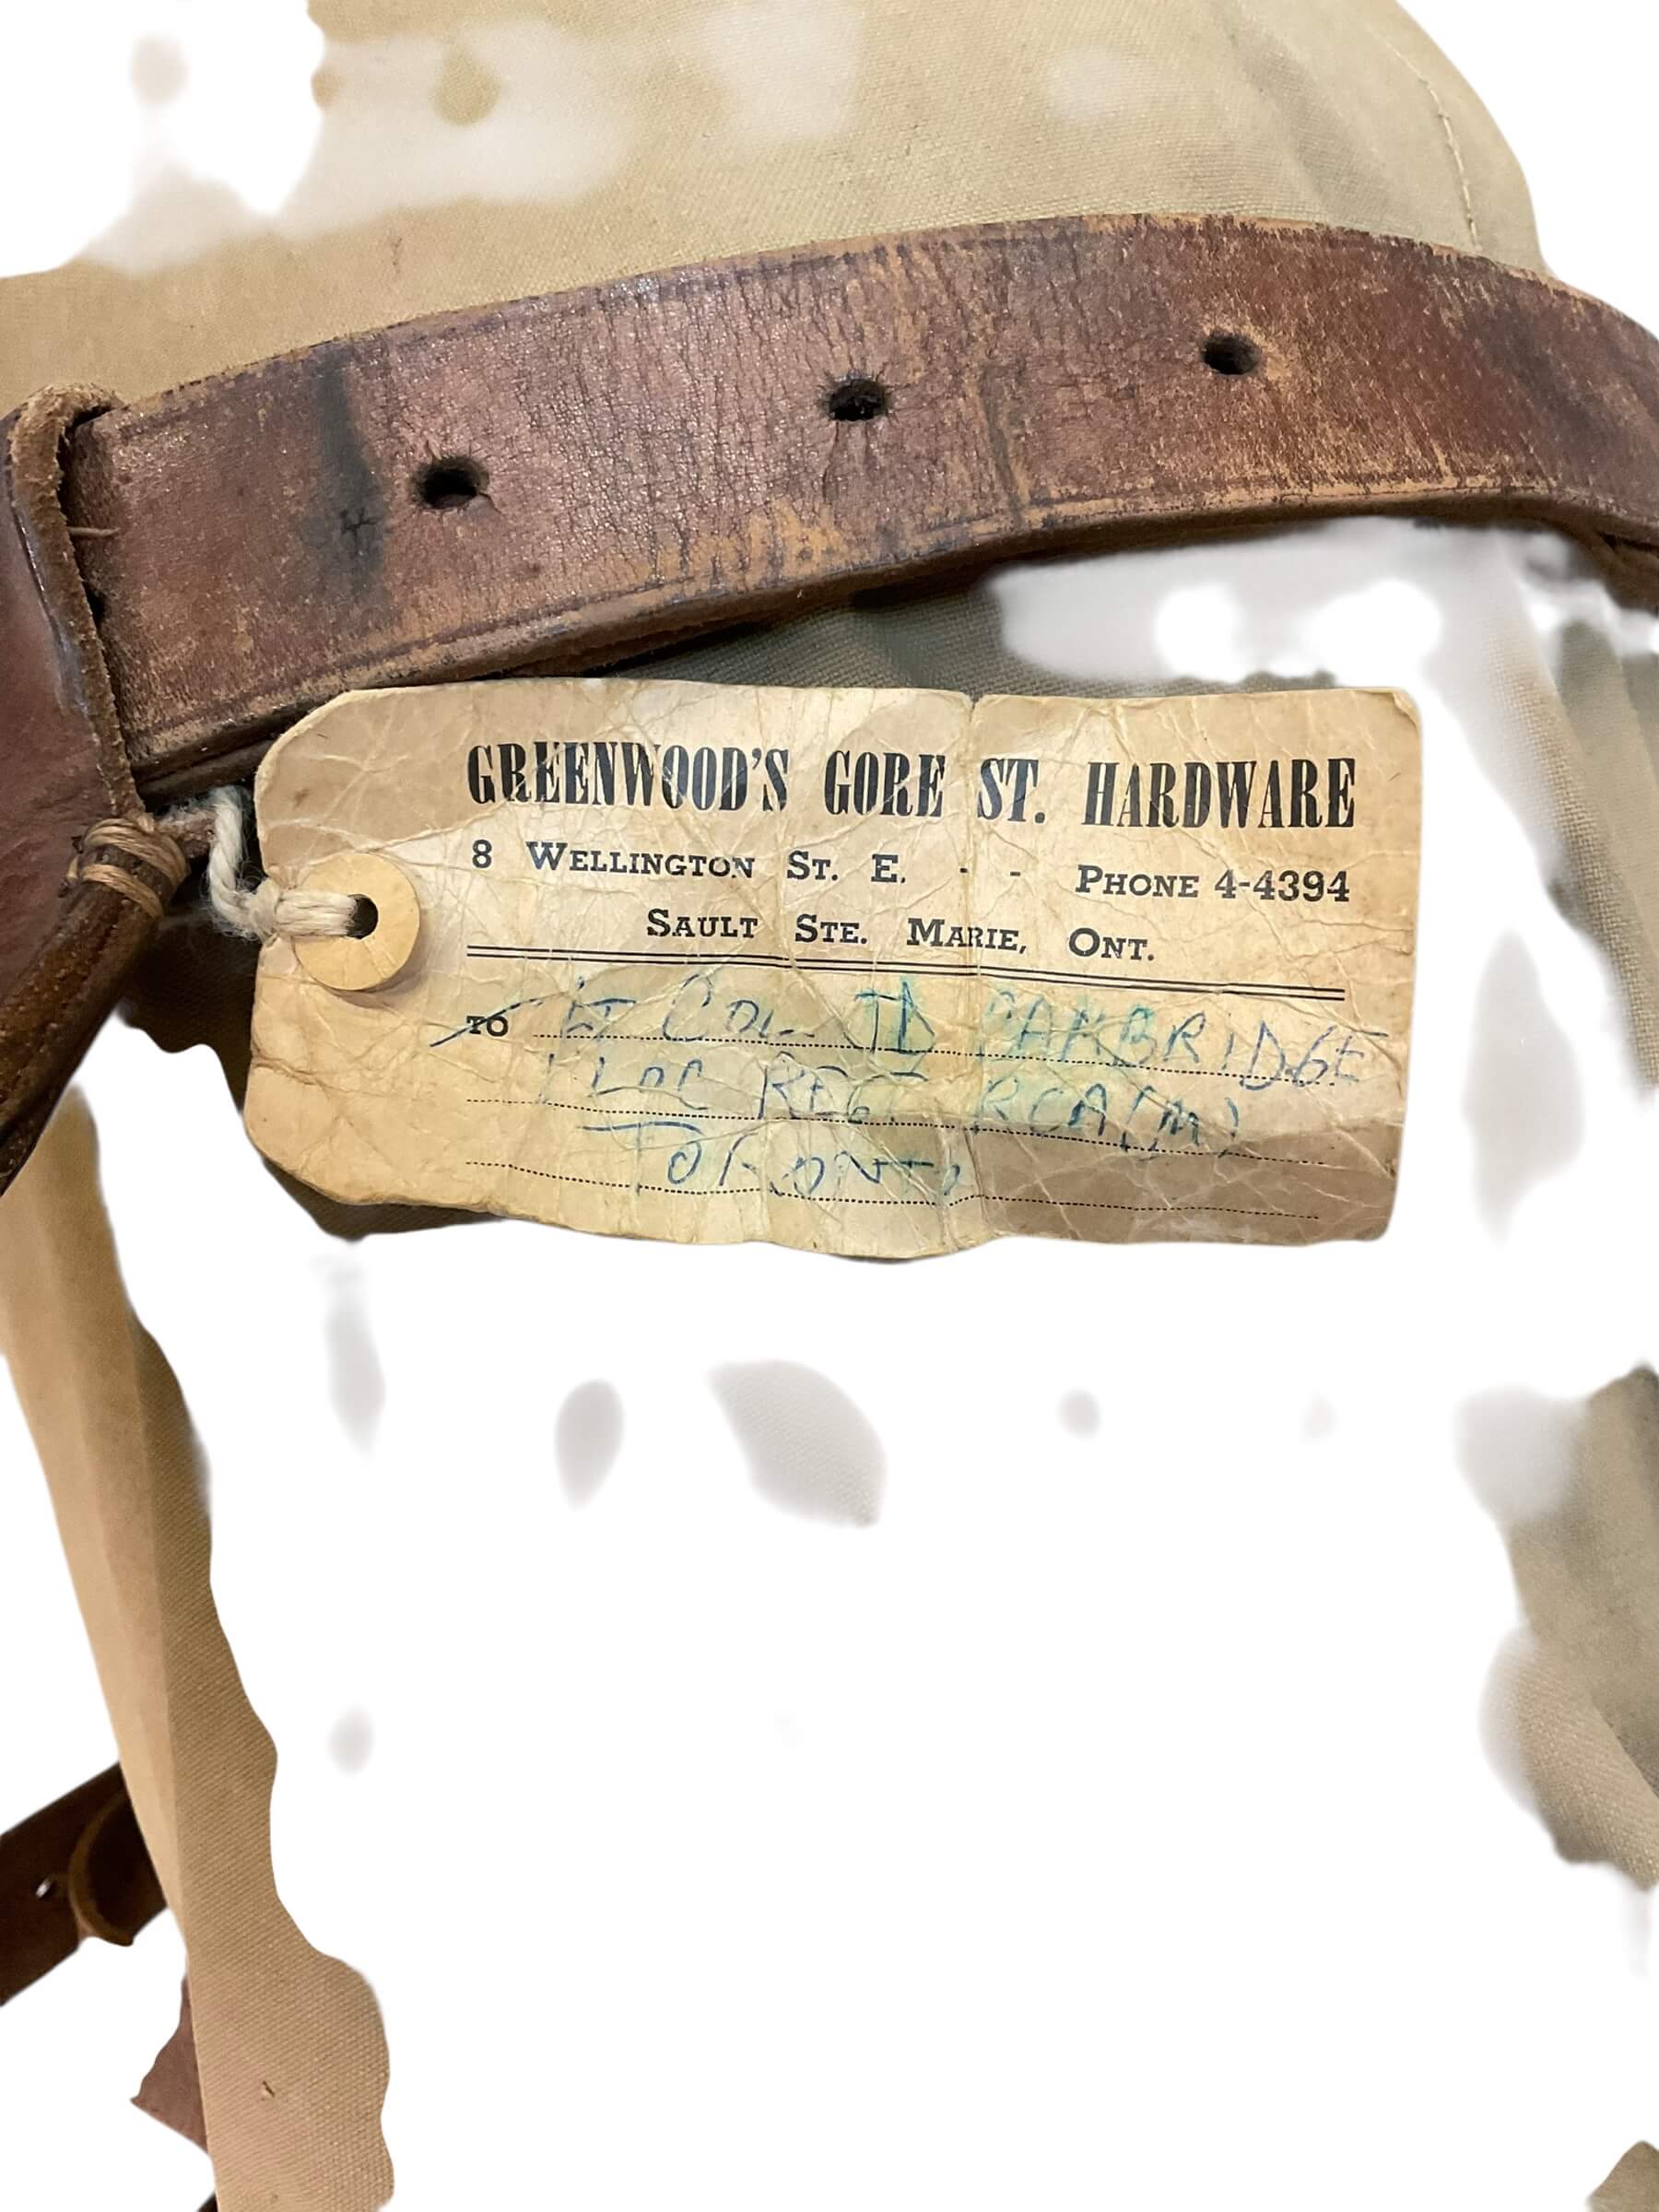 GREENWOOD'S GORE ST. HARDWARE
8 WELLINGTON ST. E. - - PHONE 4-4394
SAULT STE. MARIE, ONT.
TO LT COL TD
1 LOC REGT RCA(M)
TORONTO